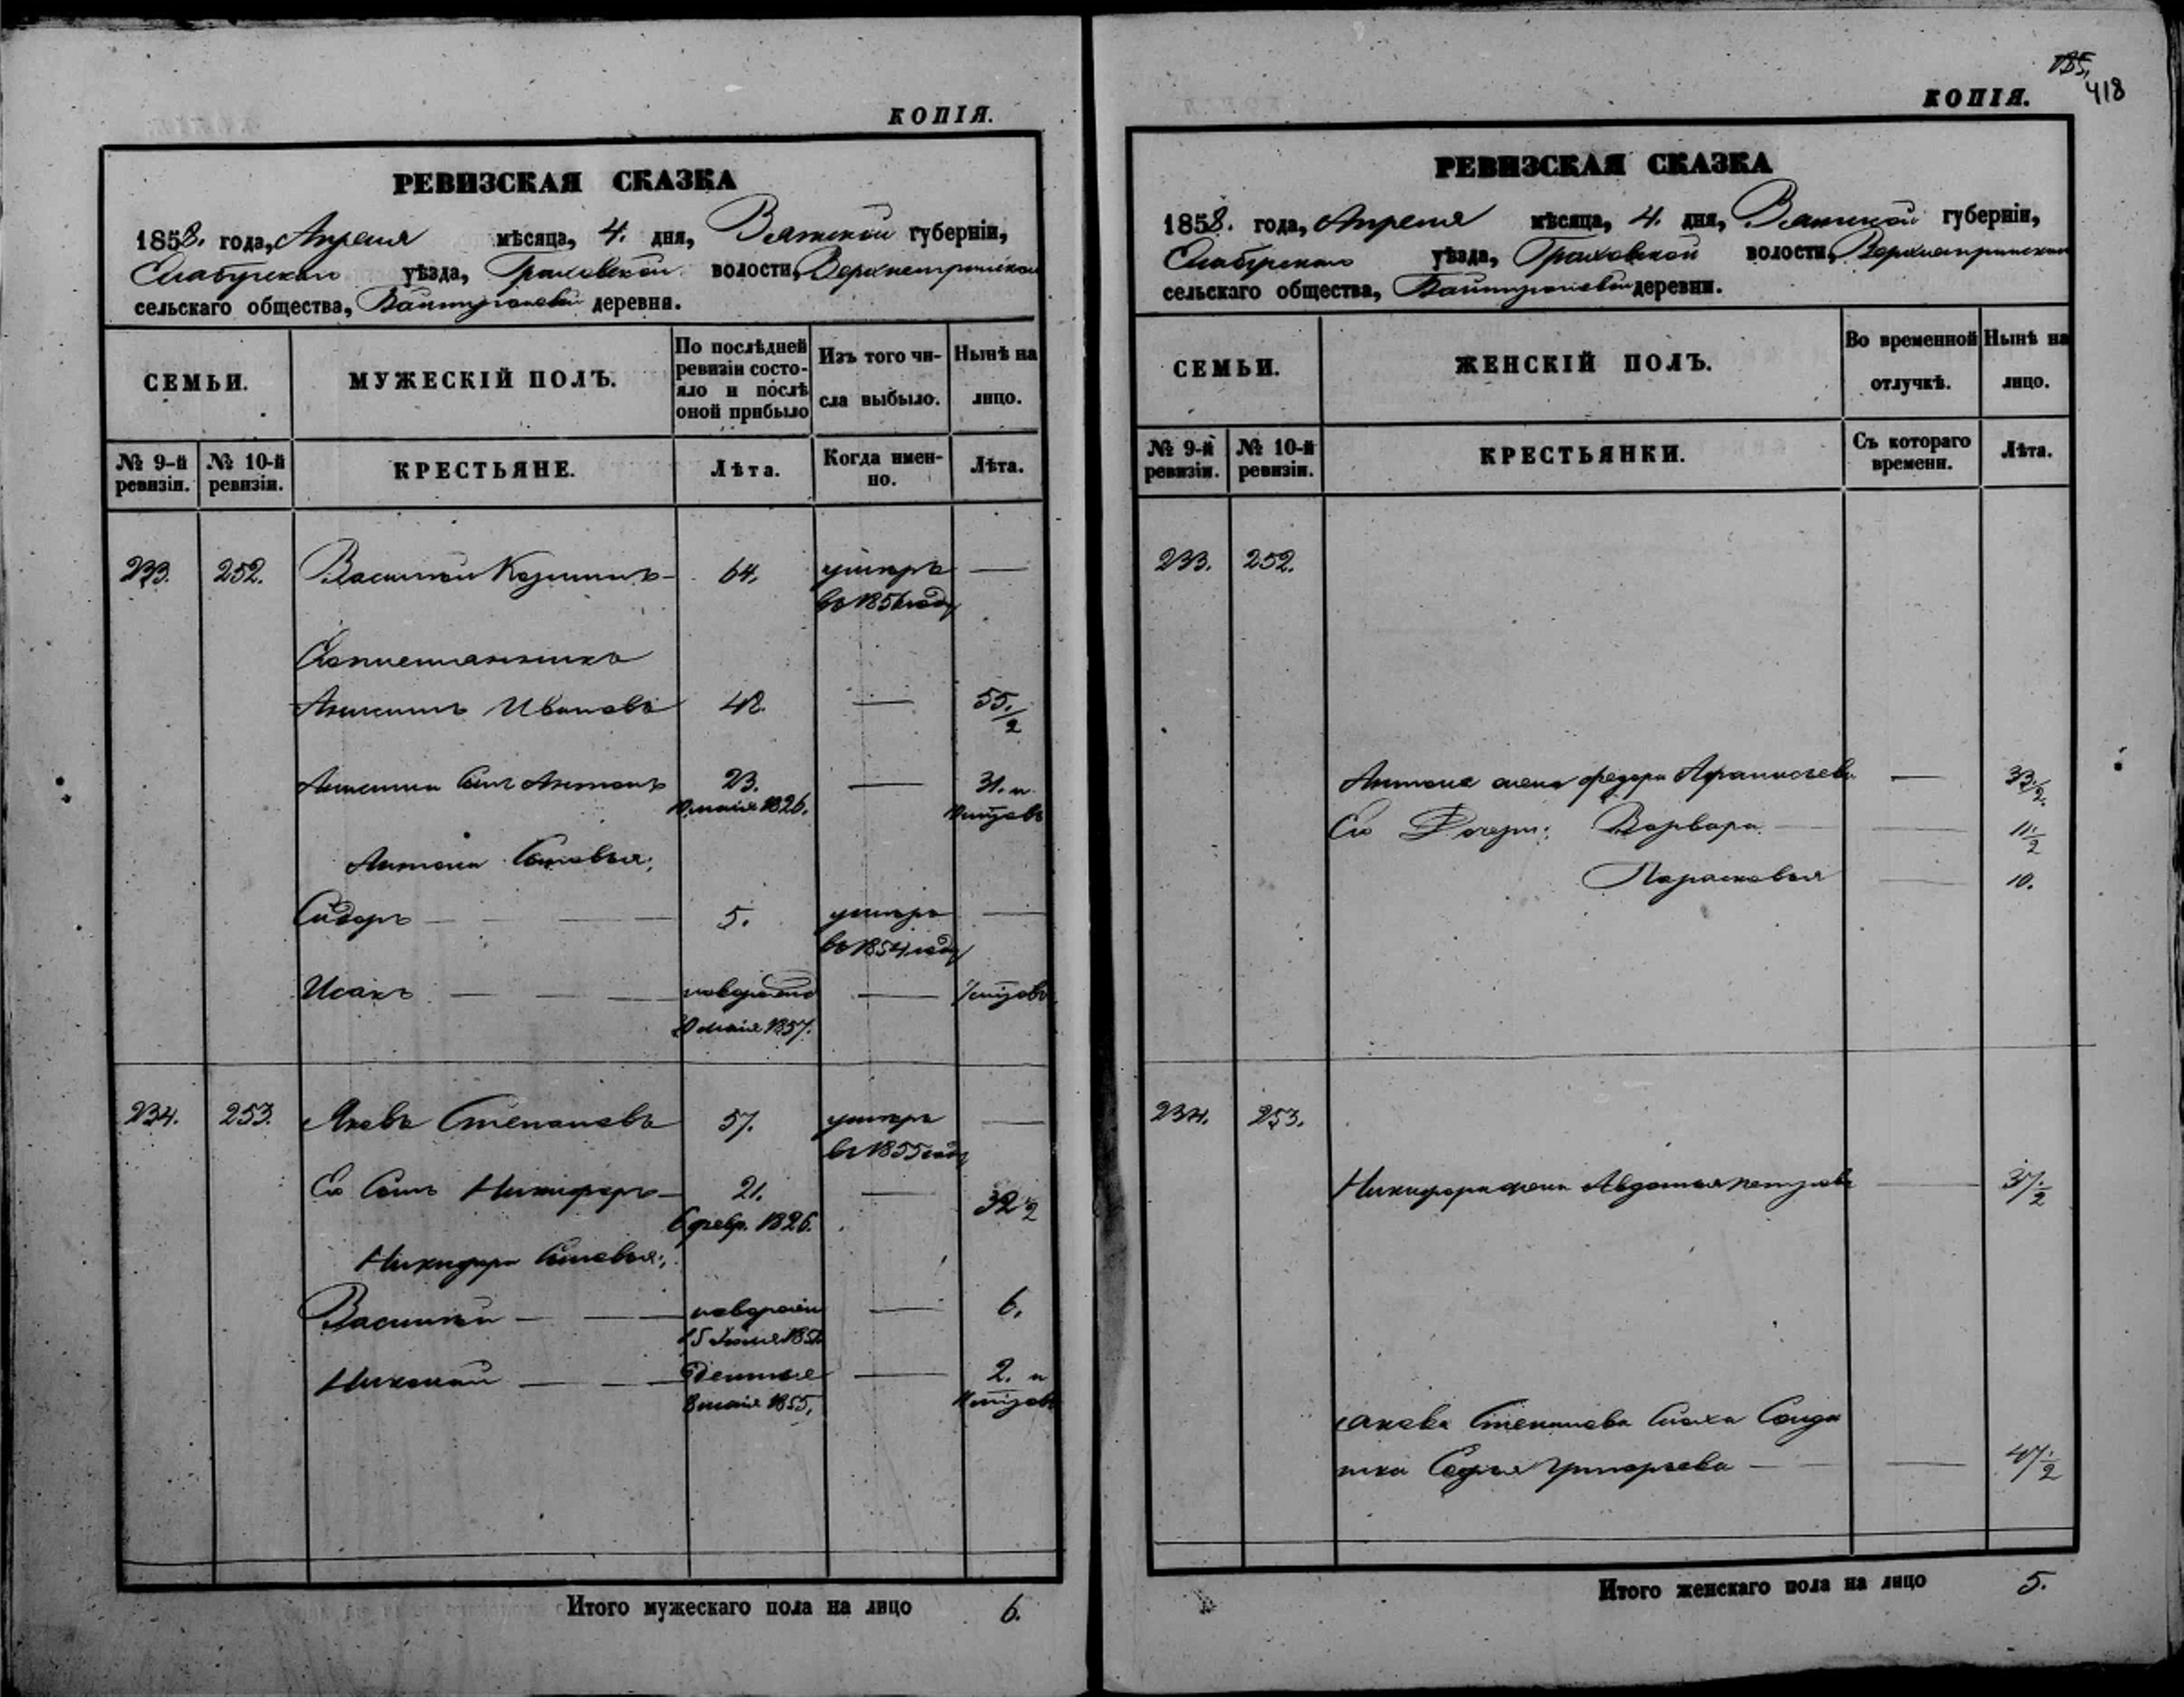 КОПІЯ.
РЕВИЗСКАЯ СКАЗКА
1858. года, Апреля мѣсяца, 4. дня, Вятской губерніи,
Елабугскаго уѣзда, Граховской волости,
сельскаго общества, деревни.
СЕМЬИ.
МУЖЕСКІЙ ПОЛЪ.
По послѣдней ревизіи состояло и послѣ оной прибыло
Изъ того числа выбыло.
Нынѣ на лицо.
№ 9-й ревизіи.
№ 10-й ревизіи.
КРЕСТЬЯНЕ.
Лѣта.
Когда именно.
Лѣта.
233. 252. Василей Козминъ — 64. умеръ —
въ 1856 году
Анисимъ Ивановъ 48. — 55. 1/2
Анисима Сынъ Антонъ 23. — 31. и
маія 1826.
Антона Сыновья:
Сидоръ — — — 5. умеръ —
въ 1854 году
Исакъ — — —
маія 1857.
234. 253. Яковъ Степановъ 57. умеръ —
въ 1855 году
Ево Сынъ Никифоръ — 21. — 32 1/2
6 февр. 1826.
Никифора Сыновья:
Василей — — — 6.
Николай — — — 2. и
8 маія 1855.
Итого мужескаго пола на лицо 6.
418
КОПІЯ.
РЕВИЗСКАЯ СКАЗКА
1858. года, Апреля мѣсяца, 4. дня, Вятской губерніи,
Елабугскаго уѣзда, Граховской волости,
сельскаго общества, деревни.
СЕМЬИ.
ЖЕНСКІЙ ПОЛЪ.
Во временной отлучкѣ.
Нынѣ на лицо.
№ 9-й ревизіи.
№ 10-й ревизіи.
КРЕСТЬЯНКИ.
Съ котораго времени.
Лѣта.
233. 252.
Антона жена Федора Афанасьева — 33. 1/2.
Ево Дочери: Варвара — — 11. 1/2
Парасковья — 10.
234. 253.
Никифора жена Авдотья Петрова — 37. 1/2
Якова Степанова Сноха Солда
тка Софья Григорьева — — 47. 1/2
Итого женскаго пола на лицо 5.